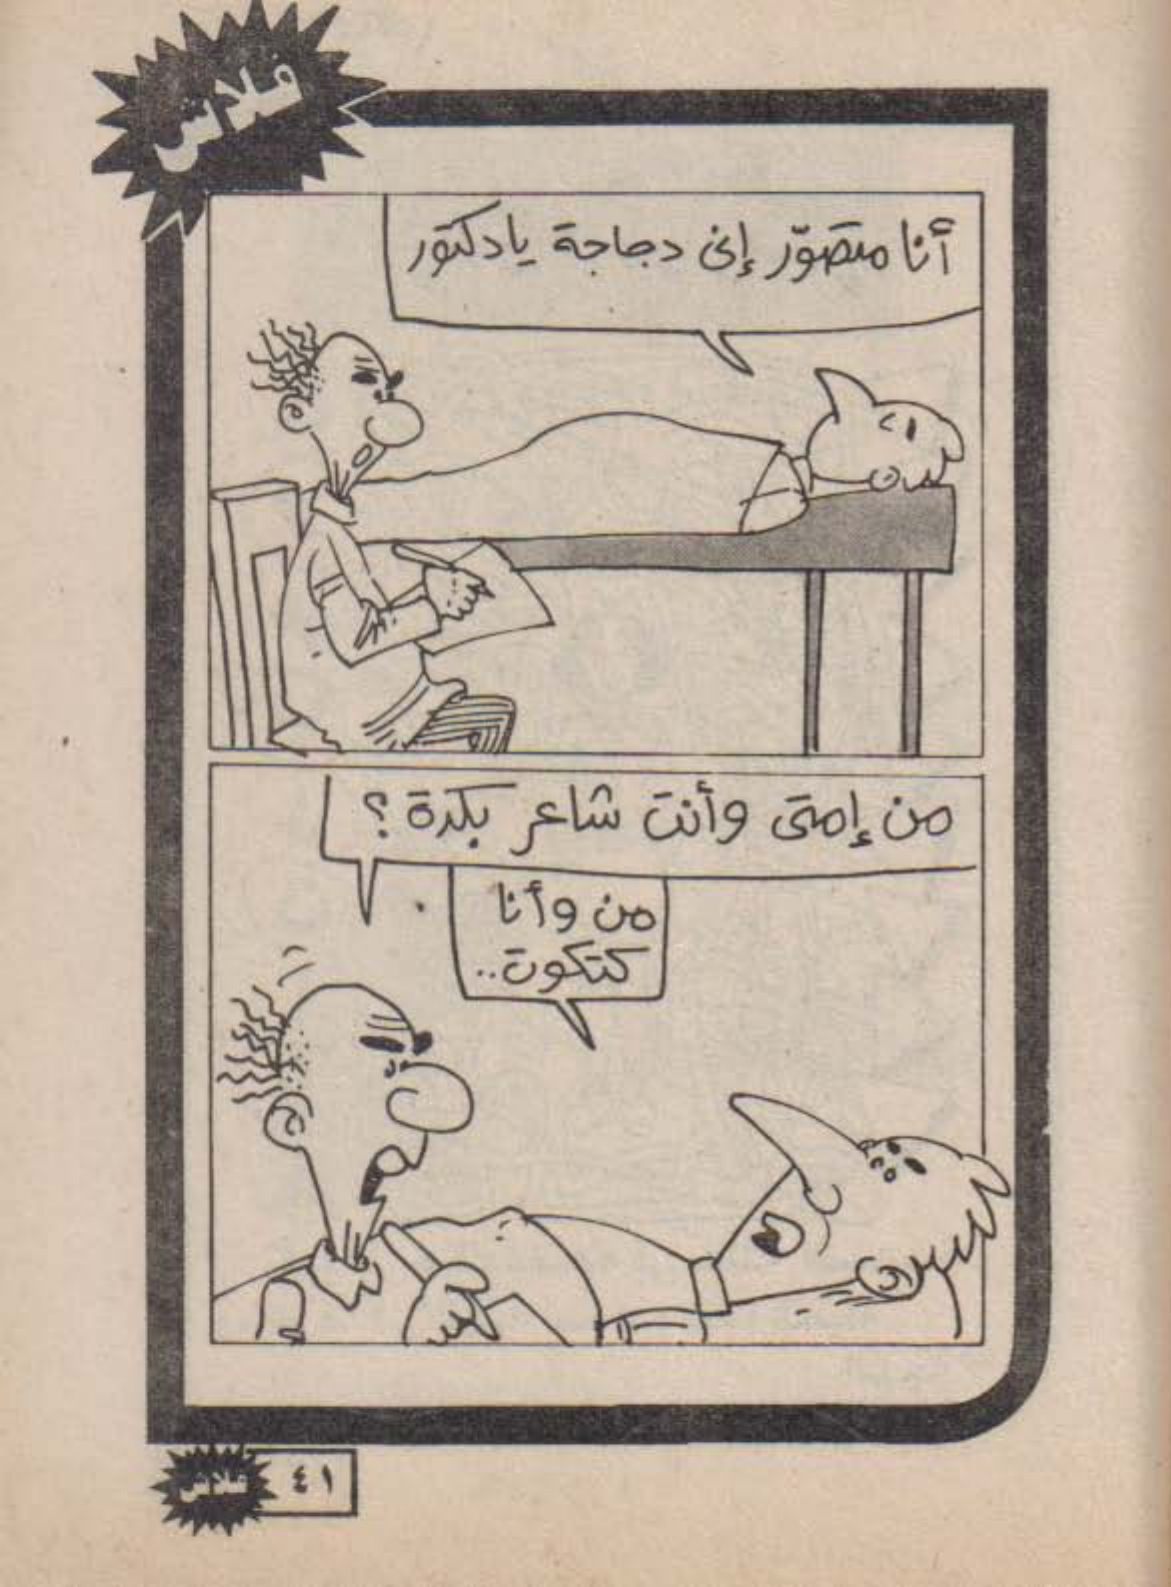 فلاش
أنا متصوّر إنى دجاجة يا دكتور
من إمتى وأنت شاعر بكدة؟
من وأنا
كتكوت..
فلاش
٤١